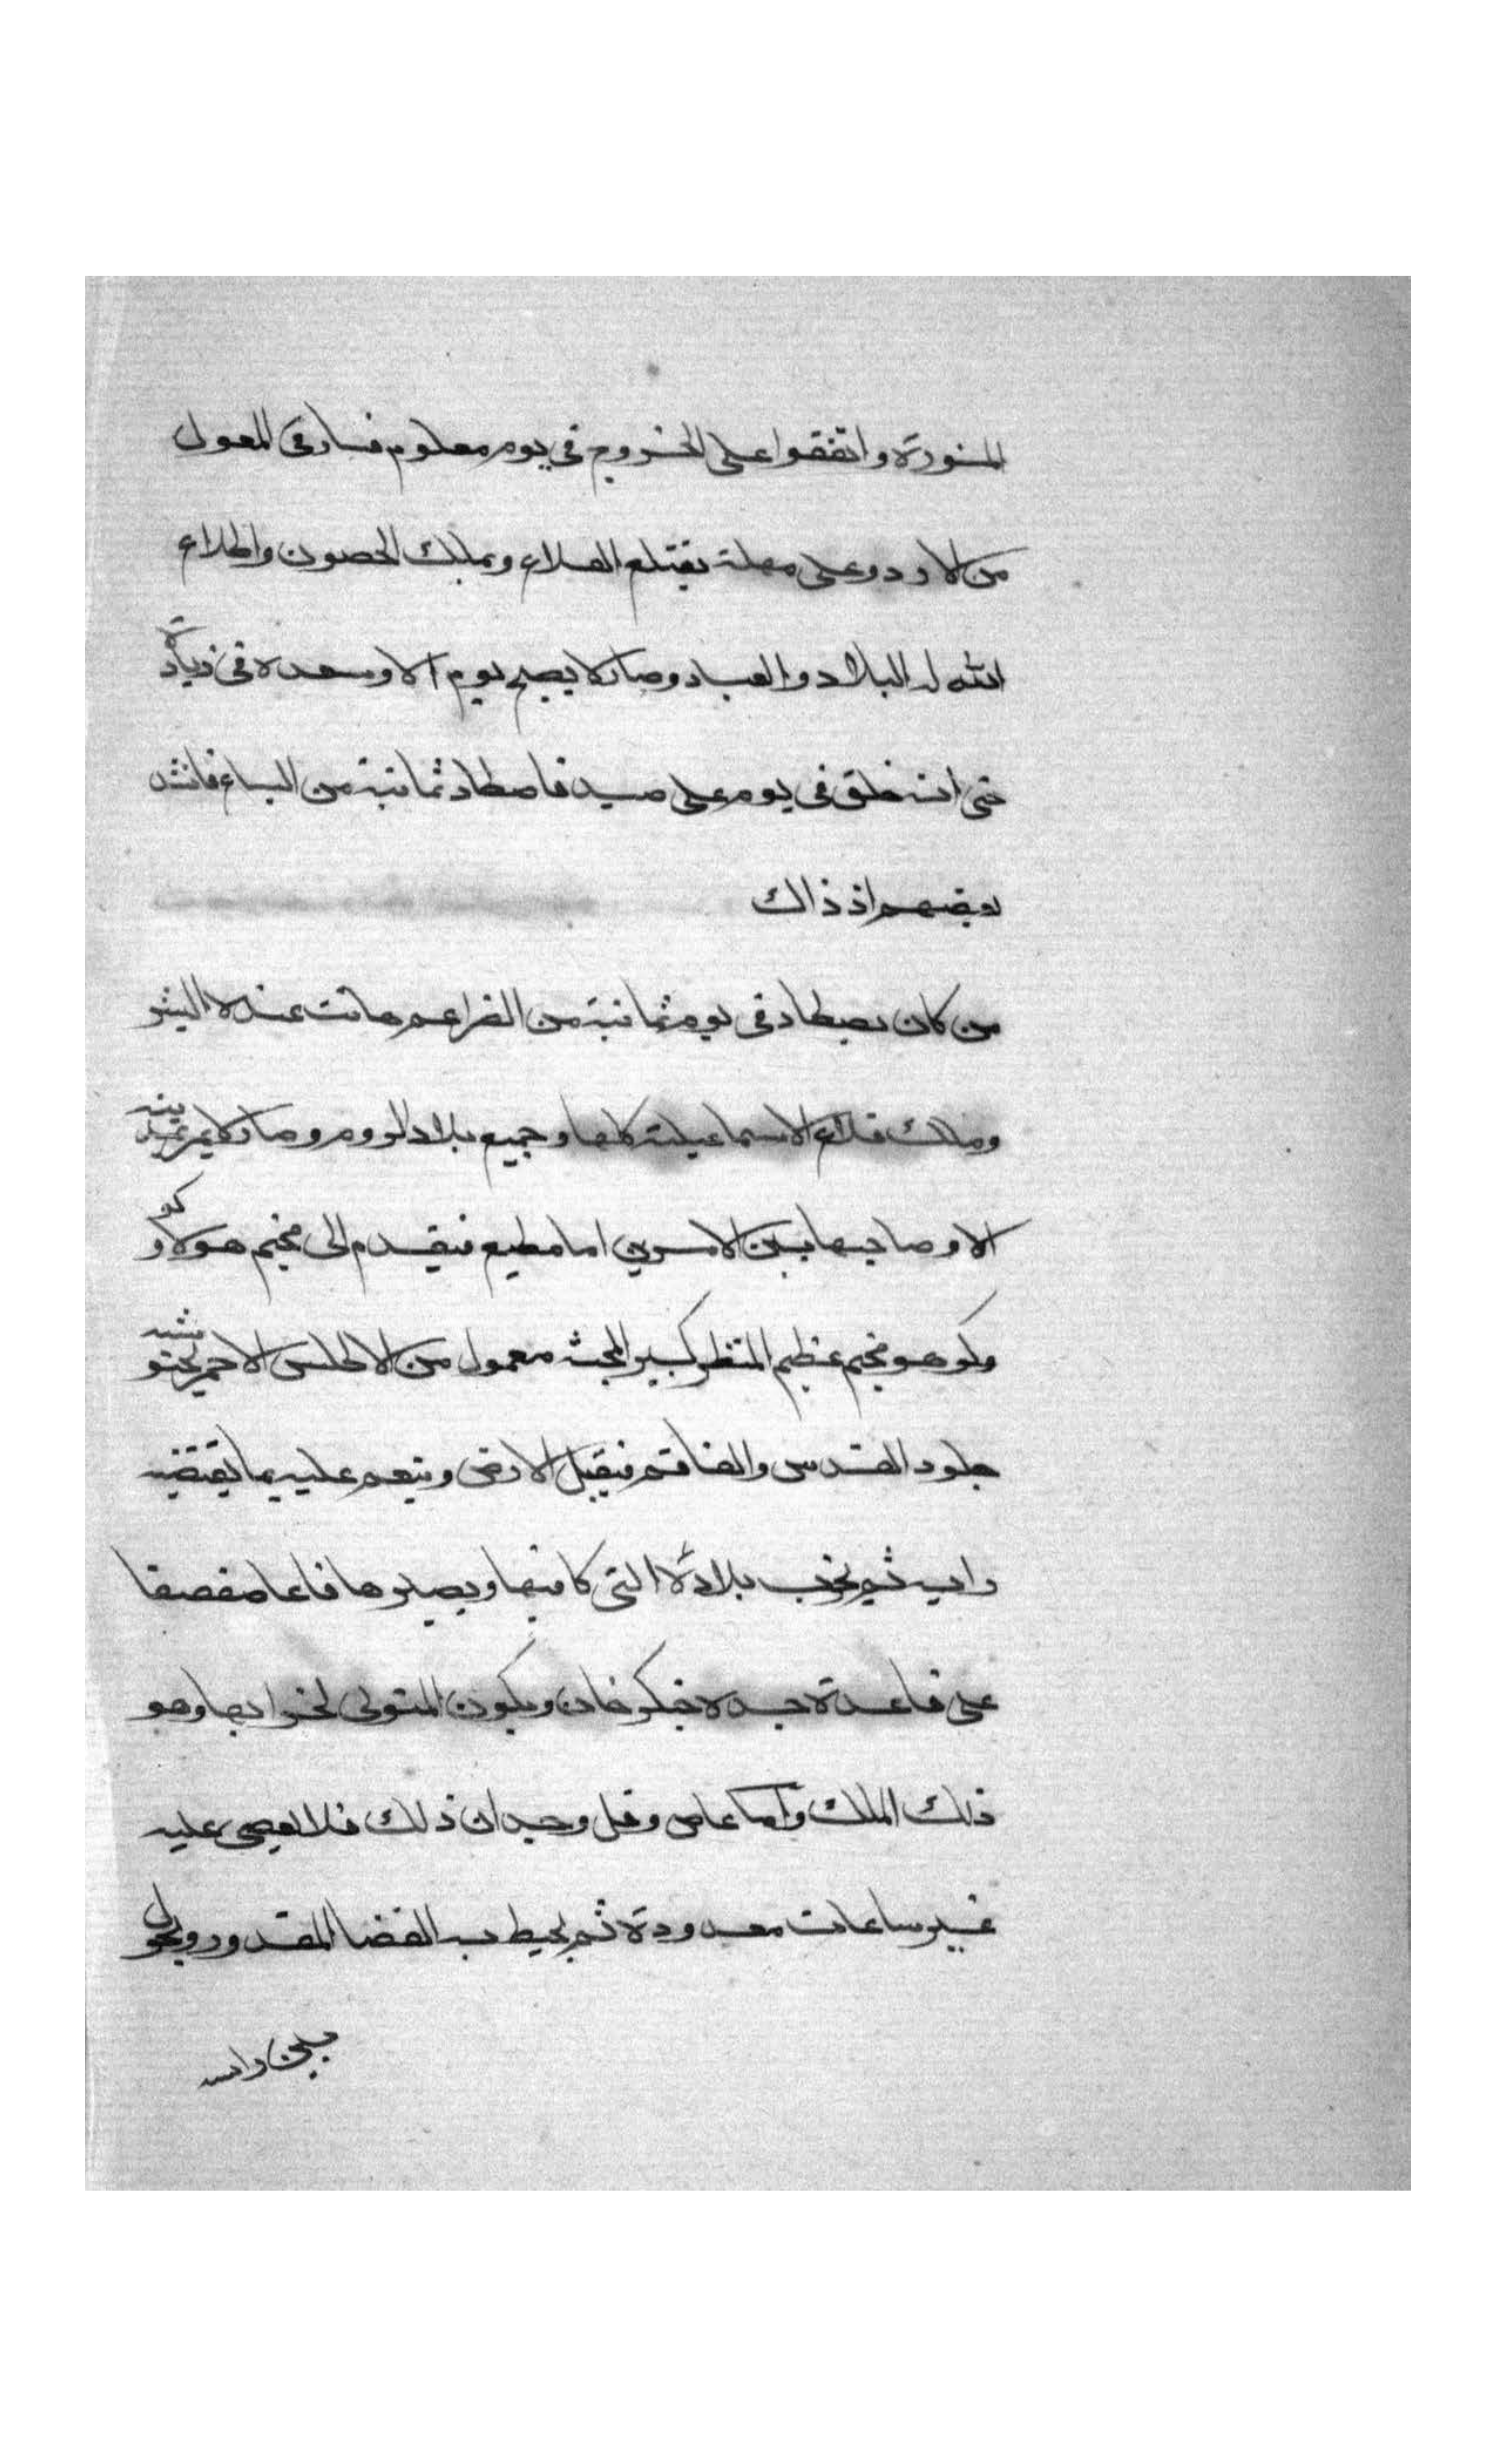 المشورة واتفقوا على الخروج في يوم معلوم فسار في المغول
من الاردو على مهلة يقتلع القلاع ويملك الحصون واطلاع
الله له البلاد والعباد وصار لا يصبح يوم الا وسعده في زيادة
حتى انه خلق في يوم على صيد فاصطاد ثمانية من السباع فانشد
بعضهم اذ ذاك
من كان يصطاد في يوم ثمانية من الضراغم هانت عنده البشر
وملك قلاع الاسماعيلية كلها وجميع بلاد الروم وصار لا يمر بمدينه
الا وصاحبها بين الامرين اما مطيع فيقدم الى مخيم هولاكو
وكو هو مخيم عظيم المنظر كبير الجثه معمول من الاطلس الاحمر بحتو
جلود القندس والقاقم فيقبل الارض وينعم عليه بما يقتضيه
رايه ثم يخرب بلاده التي كا فيها ويصيرها قاعا صفصفا
على قاعدة جده جنكز خان ويكون المتولي لخرابها وهو
ذلك الملك واما عاص وقل وجدان ذلك فلا يعصى عليه
غير ساعات معدودة ثم يحيط به القضا المقدور ويحول
بين راسه